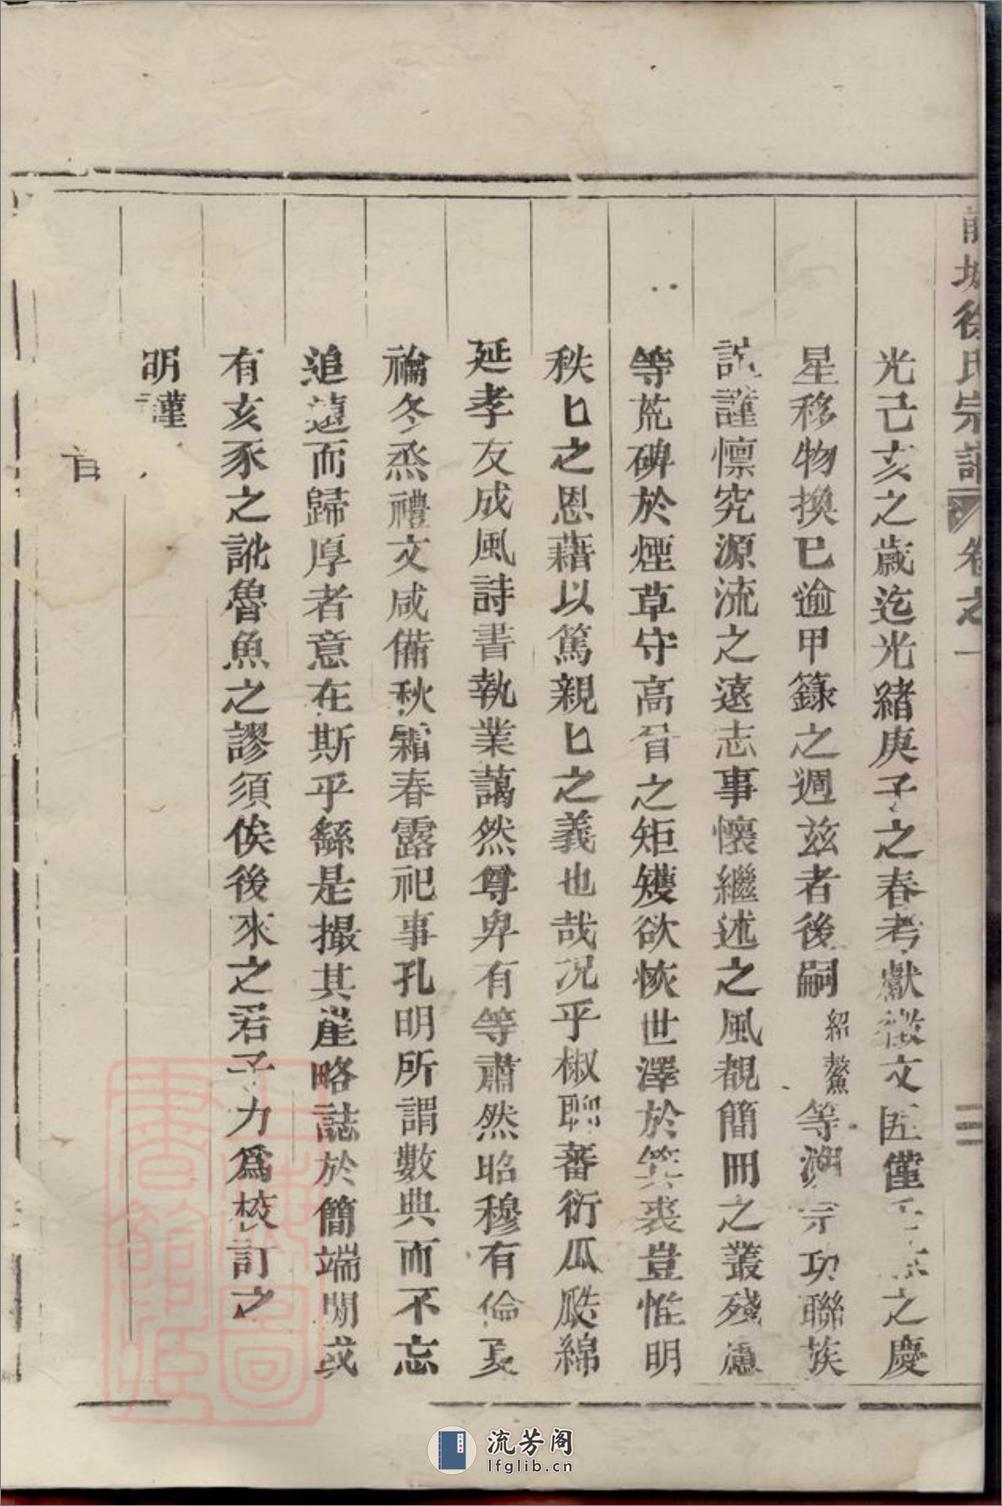 徐氏宗譜 卷之一 二
光己亥之歲迄光緒庚子之春考獻徵文匪僅之慶
星移物換已逾甲籙之週茲者後嗣紹鰲等溯宗功聯族
誼謹懔究源流之遠志事懷繼述之風覩簡冊之叢殘慮
等荒碑於煙草守高曾之矩矱欲恢世澤於箕裘豈惟明
秩匕之恩藉以篤親匕之義也哉况乎椒聊蕃衍瓜瓞綿
延孝友成風詩書執業藹然尊卑有等肅然昭穆有倫夏
禴冬烝禮文咸備秋霜春露祀事孔明所謂數典而不忘
追遠而歸厚者意在斯乎繇是撮其崖略誌於簡端間或
有亥豕之訛魯魚之謬須俟後來之君子力爲校訂之
明謹
流芳阁
lfglib.cn